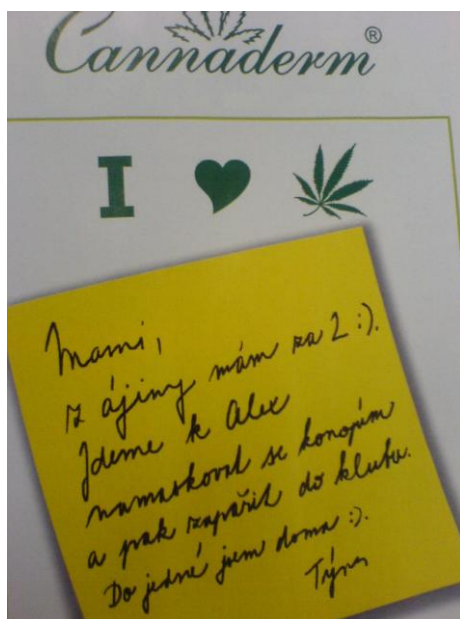 Cannaderm®
I
Mami,
z ájiny mám za 2 :).
Jdeme k Alex
namaskovat se konopím
a pak zapařit do klubu.
Do jedné jsem doma :).
Týna